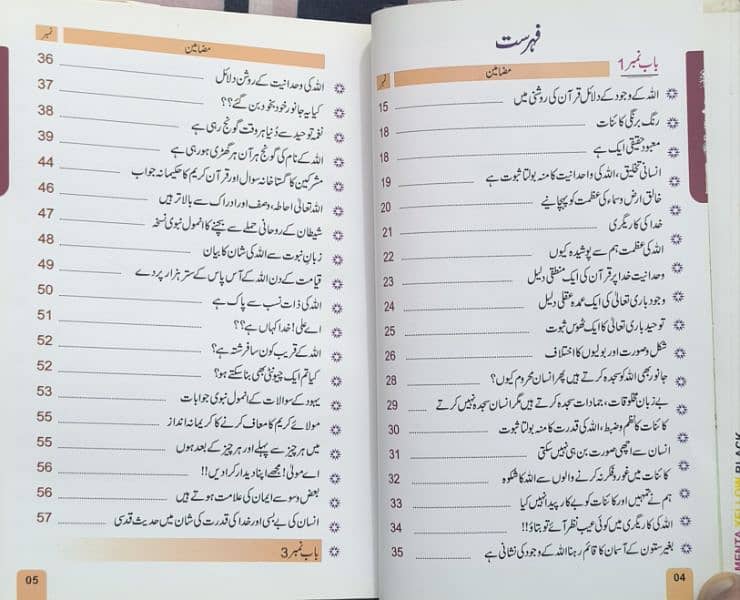 فہرست
باب نمبر 1
نمبر مضامین
اللہ کے وجود کے دلائل قرآن کی روشنی میں 15
رنگ برنگی کائنات 18
معبود حقیقی ایک ہے 18
انسانی تخلیق، اللہ کی واحدانیت کا منہ بولتا ثبوت ہے 19
خالق ارض و سماء کی عظمت کو پہچانیے 20
خدا کی کاریگری 21
اللہ کی عظمت ہم سے پوشیدہ کیوں 22
وحدانیت خدا پر قرآن کی ایک منطقی دلیل 23
وجود باری تعالیٰ کی ایک عمدہ عقلی دلیل 24
توحید باری تعالیٰ کا ایک ٹھوس ثبوت 25
شکل و صورت اور بولیوں کا اختلاف 26
جانور بھی اللہ کو سجدہ کرتے ہیں پھر انسان محروم کیوں؟ 28
بے زبان مخلوقات، جمادات سجدہ کرتے ہیں مگر انسان سجدہ نہیں کرتے 29
کائنات کا نظم و ضبط، اللہ کی قدرت کا منہ بولتا ثبوت 30
انسان سے اچھی صورت بن ہی نہیں سکتی 31
کائنات میں غور و فکر نہ کرنے والوں سے اللہ کا شکوہ 32
ہم نے تمہیں اور کائنات کو بے کار پیدا نہیں کیا 33
اللہ کی کاریگری میں کوئی عیب نظر آئے تو بتاؤ!! 34
بغیر ستون کے آسمان کا قائم رہنا اللہ کے وجود کی نشانی ہے 35
04
نمبر مضامین
اللہ کی وحدانیت کے روشن دلائل 36
کیا یہ جانور خود بخود بن گئے؟؟ 37
نغمہ توحید سے دُنیا ہر وقت گونج رہی ہے 38
اللہ کے نام کی گونج ہر آن ہر گھڑی ہو رہی ہے 39
مشرکین کا گستاخانہ سوال اور قرآن کریم کا حکیمانہ جواب 44
اللہ تعالیٰ احاطہ، وصف اور ادراک سے بالاتر ہیں 46
شیطان کے روحانی حملے سے بچنے کا انمول نبوی نسخہ 47
زبانِ نبوت سے اللہ کی شان کا بیان 48
قیامت کے دن اللہ کے آس پاس کے ستر ہزار پردے 49
اللہ کی ذات نسب سے پاک ہے 50
اے علی! خدا کہاں ہے؟؟ 51
اللہ کے قریب کون سا فرشتہ ہے؟ 52
کیا تم ایک چیونٹی بھی بنا سکتے ہو؟ 52
یہود کے سوالات کے انمول نبوی جوابات 53
مولائے کریم کا معاف کرنے کا کریمانہ انداز 55
میں ہر چیز سے پہلے اور ہر چیز کے بعد ہوں 55
اے مولیٰ! مجھے اپنا دیدار کرا دیں!! 56
بعض وسوسے ایمان کی علامت ہوتے ہیں 56
انسان کی بے بسی اور خدا کی قدرت کی شان میں حدیث قدسی 57
باب نمبر 3
05
MENTA YELLOW BLACK